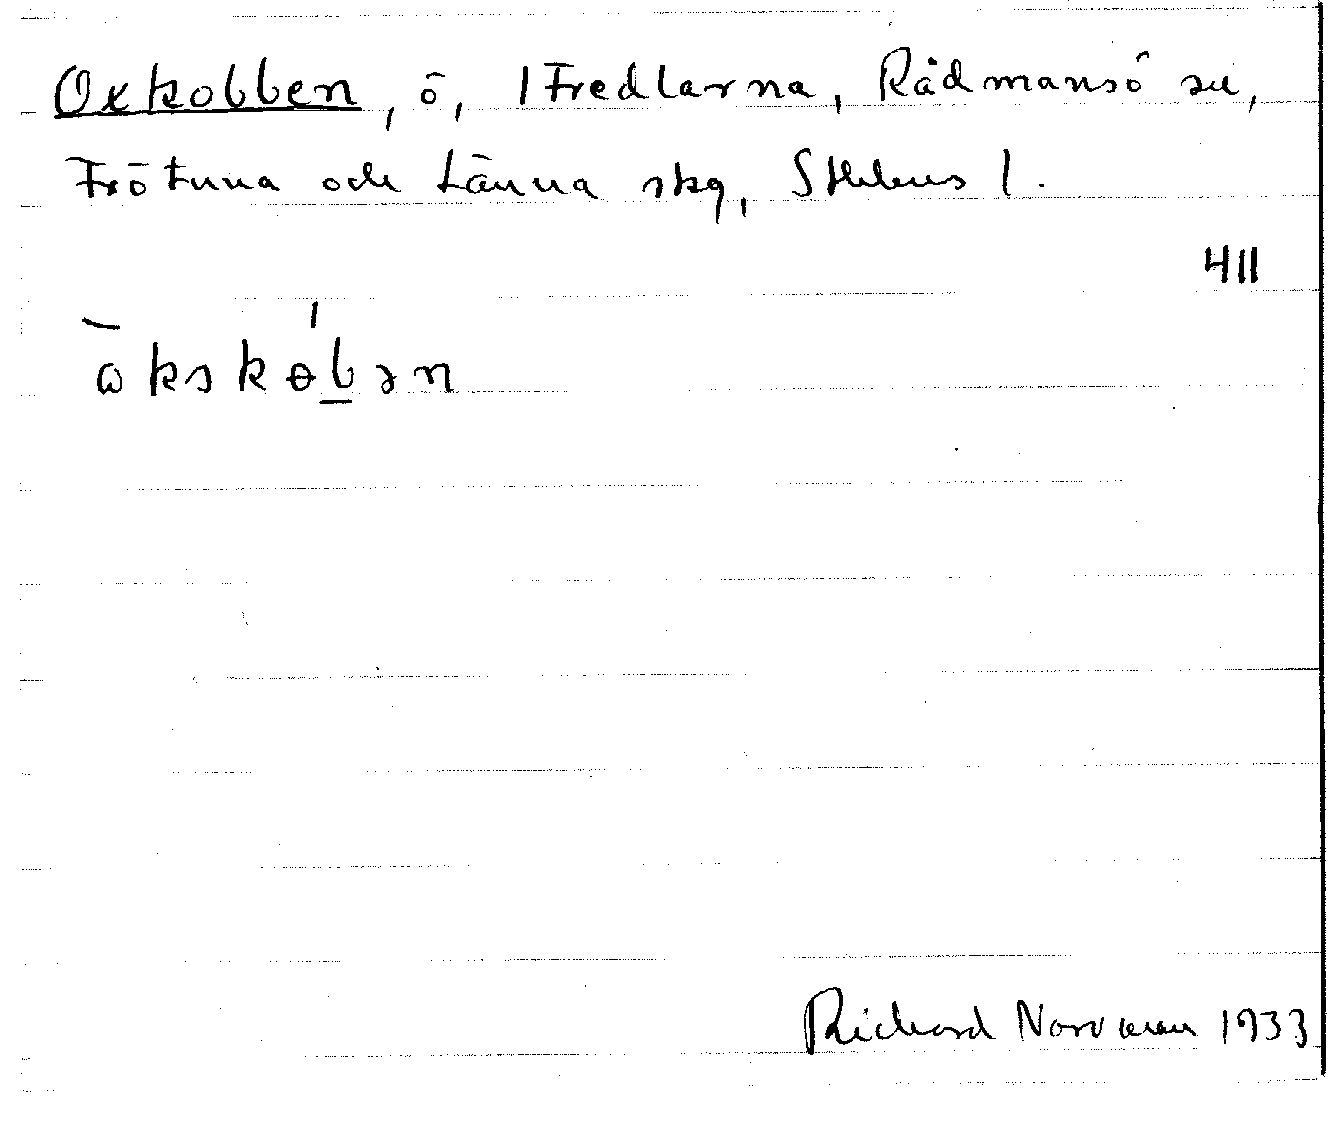 Oxkobben, ö, I Fredlarna, Rådmansö sn,
Frötuna och Länna skg, Sthlms l.
411
ɷkskɵbən
Richard Norrman 1933